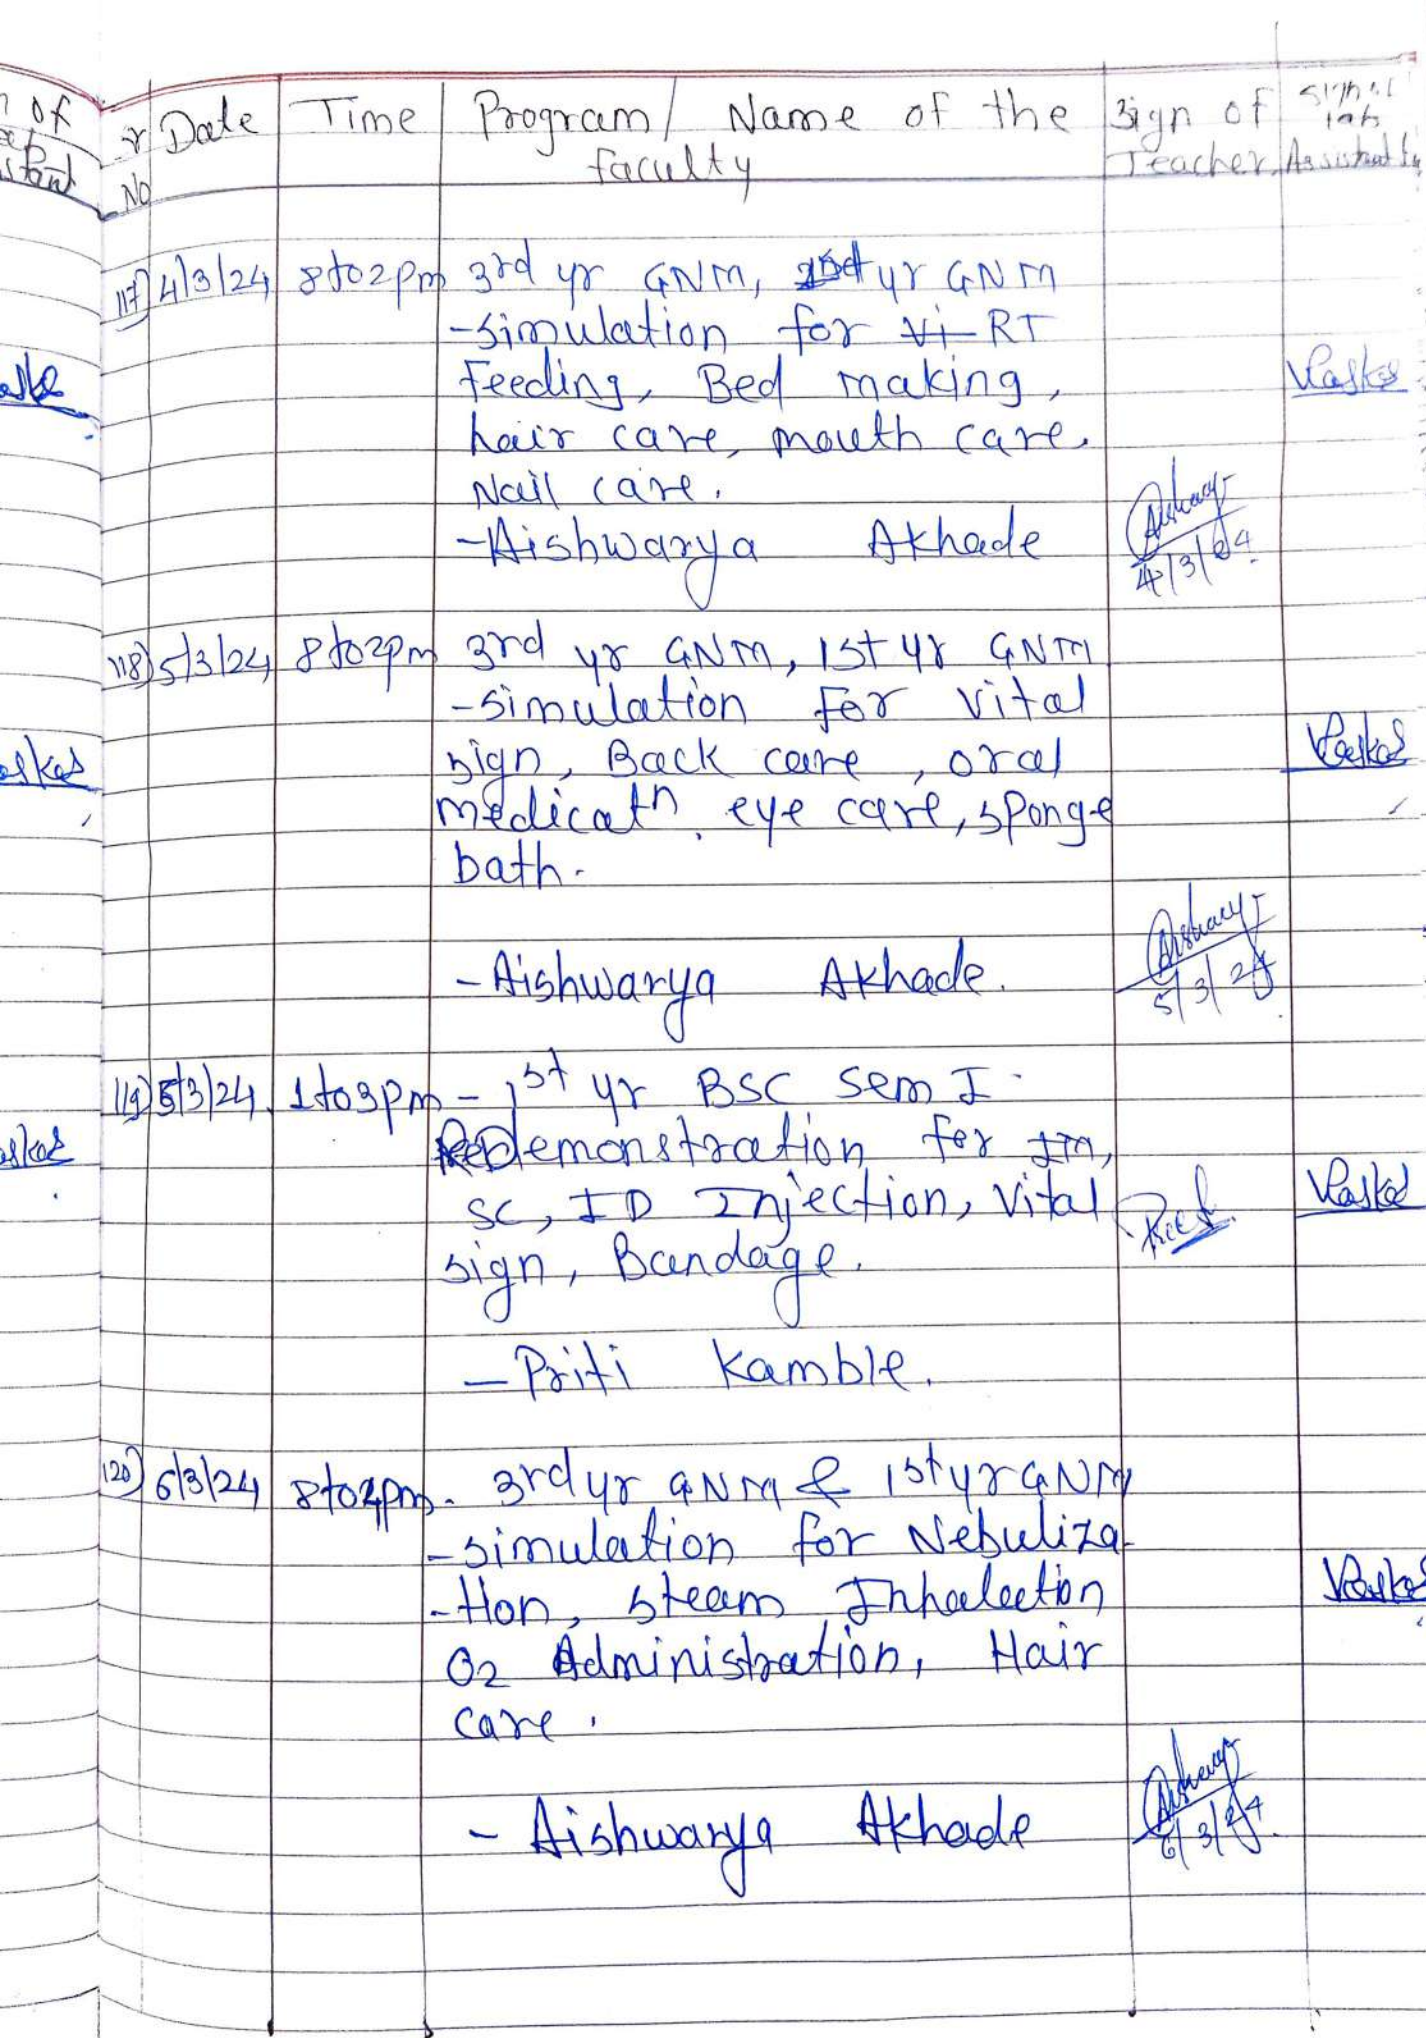 Date Time Program/ Name of the Sign of
No faculty Teacher.
117) 4/3/24 8 to 2 pm 3rd yr GNM, yr GNM
-simulation for Vi RT
Feeding, Bed making,
hair care, mouth care.
Nail care.
-Aishwarya Akhade
4/3/24
118) 5/3/24 8 to 2pm 3rd yr GNM, 1st yr GNM
-simulation for vital
sign, Back care, oral
medicatn, eye care, sponge
bath.
-Aishwarya Akhade.
5/3/24
119) 5/3/24. 1 to 3pm - 1st yr BSC Sem I.
Demonstration for IM,
SC, ID Injection, Vital
sign, Bandage.
-Priti Kamble.
120) 6/3/24 8 to pm. 3rd yr GNM & 1st yr GNM
-simulation for Nebuliza-
-tion, steam Inhalation
O2 Administration, Hair
care.
- Aishwarya Akhade
6/3/24